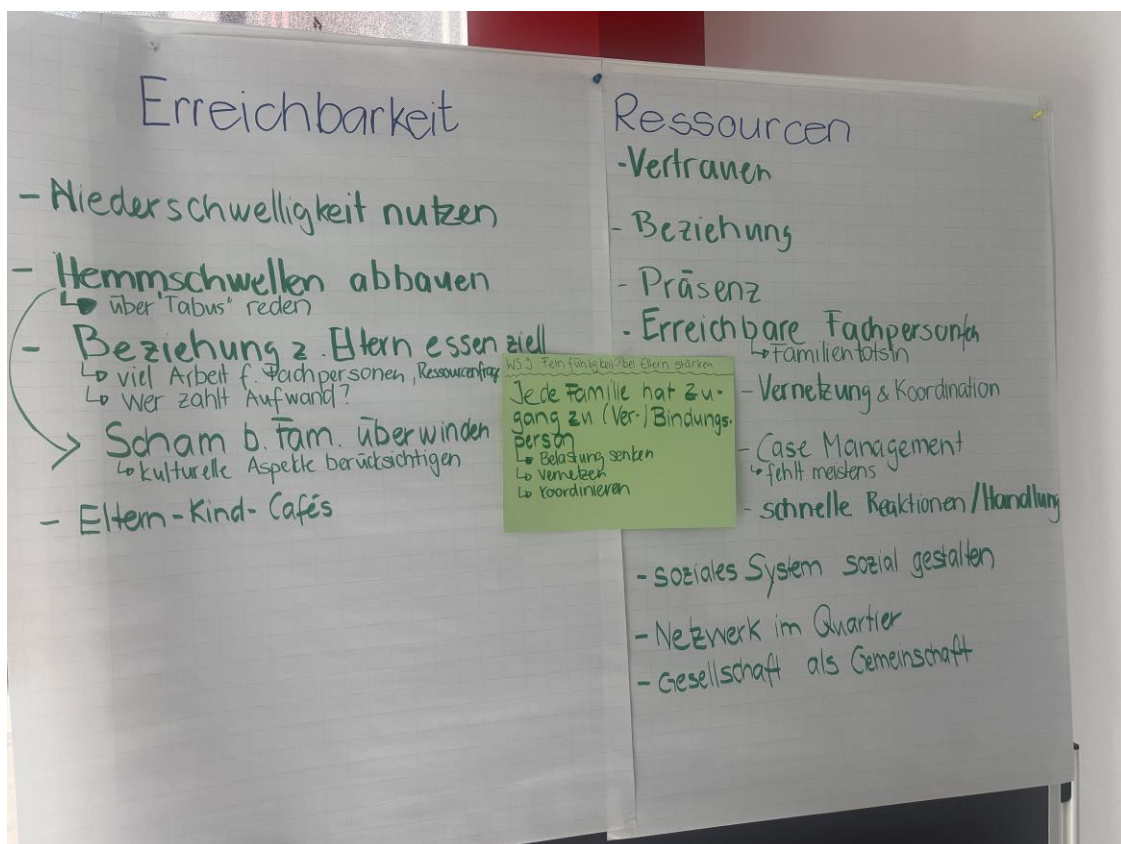 Erreichbarkeit
- Niederschwelligkeit nutzen
- Hemmschwellen abbauen
↳ über "Tabus" reden
- Beziehung z. Eltern essenziell
↳ viel Arbeit f. Fachpersonen, Ressourcenfrage
↳ Wer zahlt Aufwand?
Scham b. Fam. überwinden
↳ kulturelle Aspekte berücksichtigen
- Eltern-Kind-Cafés
WS 3 Feinfühligkeit bei Eltern stärken
Jede Familie hat Zu-
gang zu (Ver-)Bindungs-
person
↳ Belastung senken
↳ vernetzen
↳ koordinieren
Ressourcen
- Vertrauen
- Beziehung
- Präsenz
- Erreichbare Fachperson/en
↳ Familienlotsin
- Vernetzung & Koordination
- Case Management
↳ fehlt meistens
- schnelle Reaktionen/Handlung
- soziales System sozial gestalten
- Netzwerk im Quartier
- Gesellschaft als Gemeinschaft